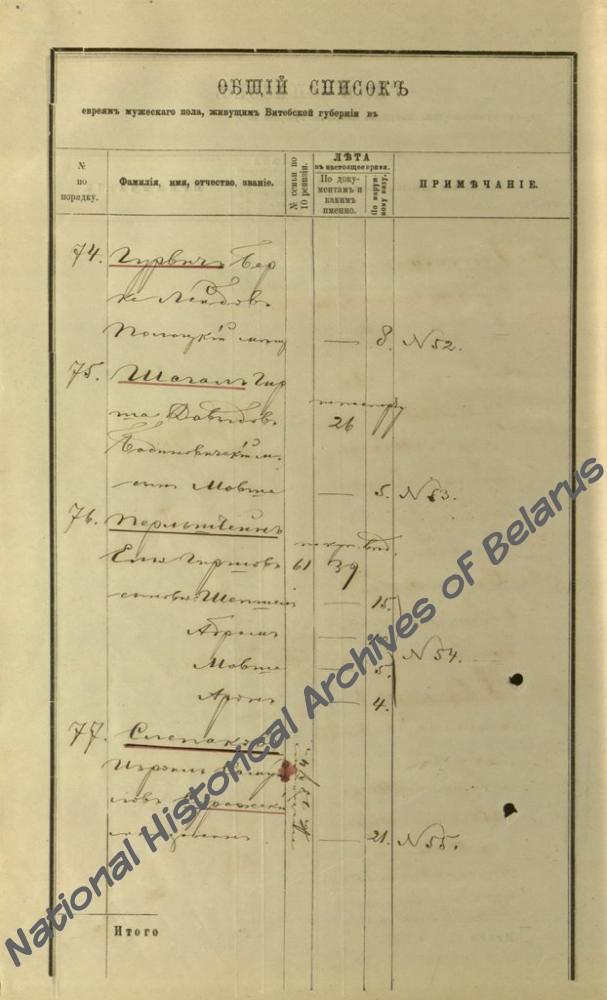 ОБЩІЙ СПИСОКЪ
евреямъ мужескаго пола, живущимъ Витебской губерніи въ
№ по порядку.
Фамилія, имя, отчество, званіе.
№ семьи по 10 ревизіи.
ЛѢТА
въ настоящее время.
По документамъ и какимъ именно.
По наружному виду.
ПРИМѢЧАНІЕ.
74. Гурвичъ Бер
ка Лейбовъ
Полоцкій мещ — 8. N 52.
75. Шагалъ Гир
ша Давыдовъ 26
Бабиновичскій м.
сынъ Мовша — 5. N 53.
76. Перльштейнъ
Гиршовъ 61 39.
сыновья: — 15.
Абрамъ —
Мовша — 5. N 54.
Аронъ — 4.
77. Слепакъ
— 21. N 55.
Итого
National Historical Archives of Belarus